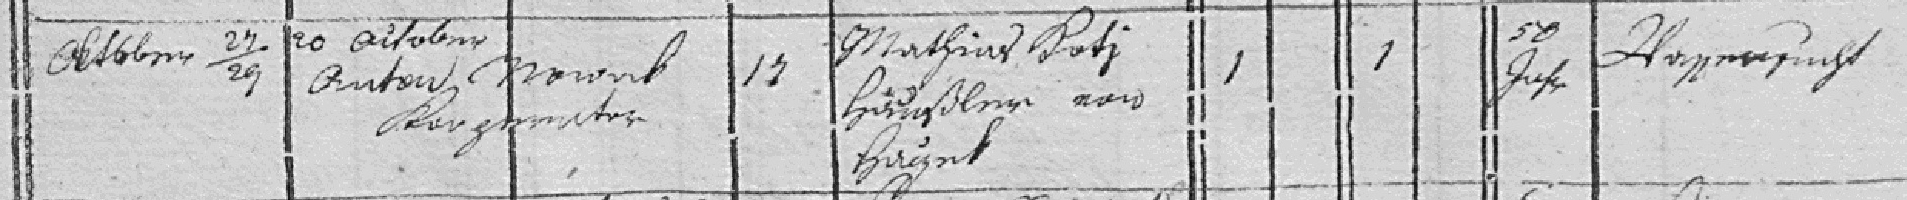 Oktober 27/29
20 October
Anton Nowak
Kooperator
17
Mathias Kotz
Häußler von
Hauzek
1
1
50
Jahr
Wassersucht